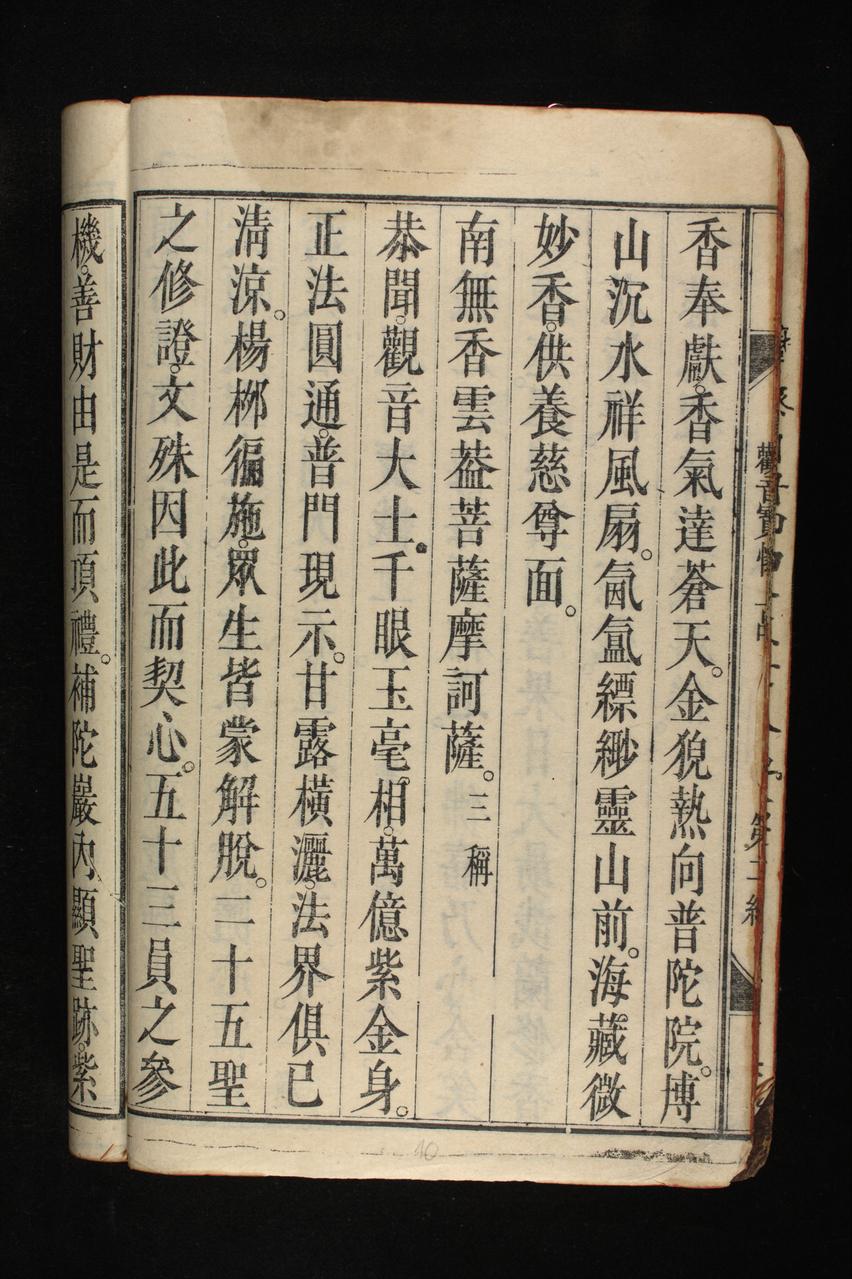 香奉獻。香氣達蒼天。金猊熱向普陀院。摶
山沉水祥風扇。氤氳縹緲靈山前。海藏微
妙香。供養慈尊面。
南無香雲葢菩薩摩訶薩。三稱
恭聞。觀音大士。千眼玉毫。相。萬億紫金身。
正法圓通。普門現示。甘露橫灑。法界俱已
清涼。楊桞徧施。眾生皆蒙解脫。二十五聖
之修證。文殊因此而契心。五十三員之參
機。善財由是而頂禮。補陀巖內。顯聖跡。紫